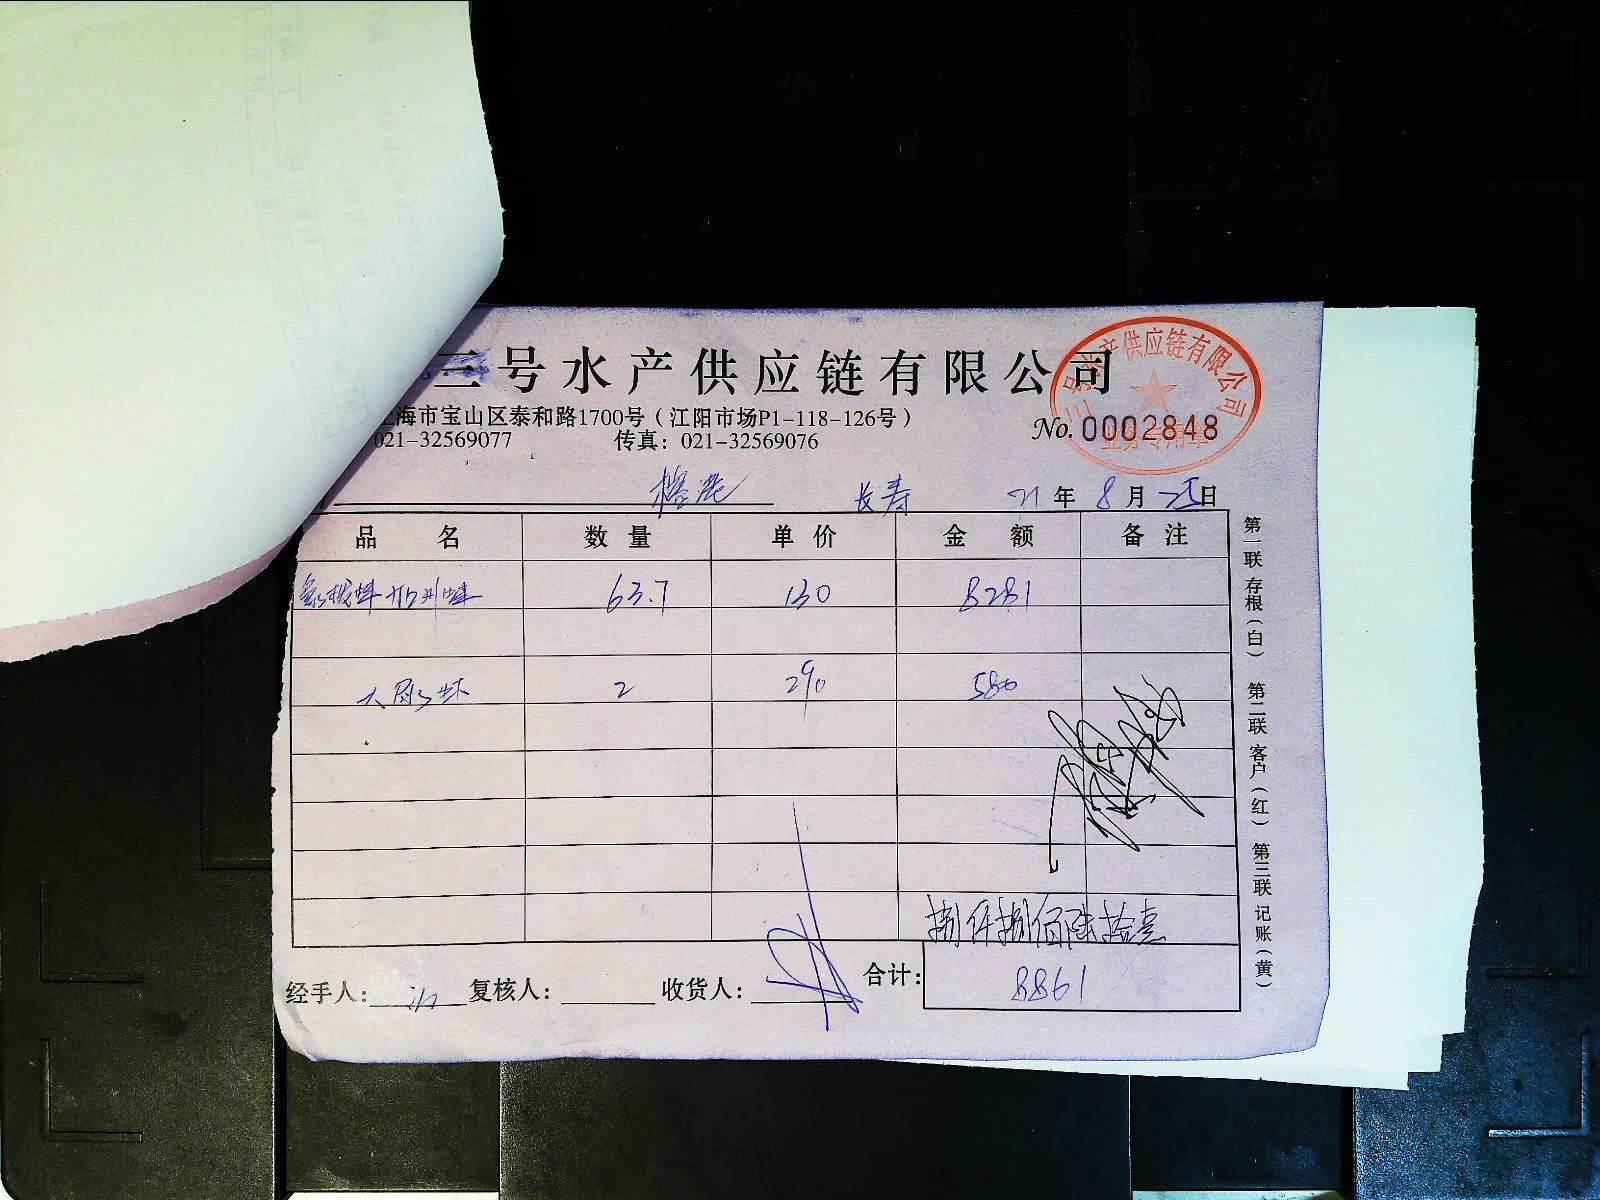 三号水产供应链有限公司
三号水产供应链有限公司
业务专用章
上海市宝山区泰和路1700号（江阳市场P1-118-126号）
No. 0002848
021-32569077 传真：021-32569076
榕港 长寿 21年8月25日
品名 数量 单价 金额 备注
63.7 130 8281
大 虾 2 290 580
捌仟捌佰陆拾壹
经手人： 复核人： 收货人： 合计： 8861
第一联 存根（白） 第二联 客户（红） 第三联 记账（黄）